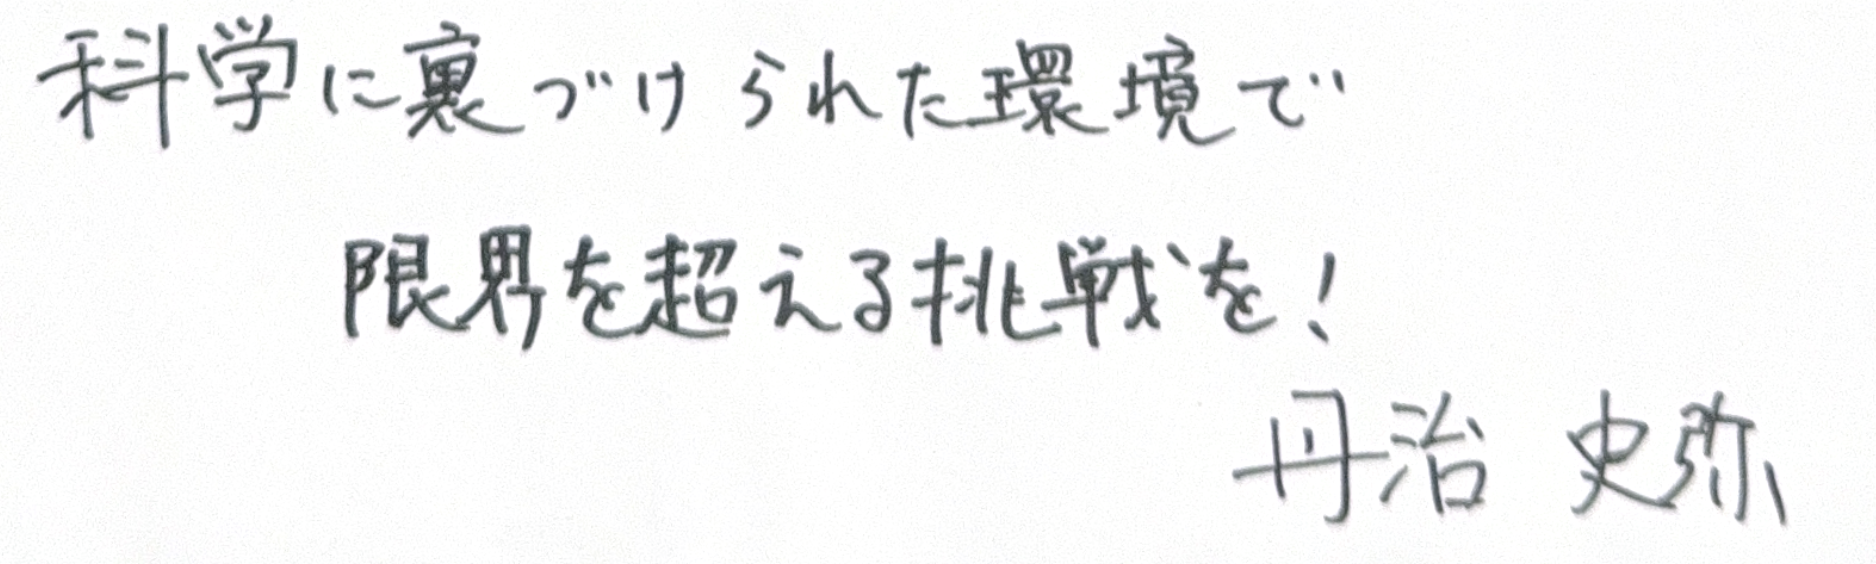 科学に裏づけられた環境で
限界を超える挑戦を！
丹治 史弥